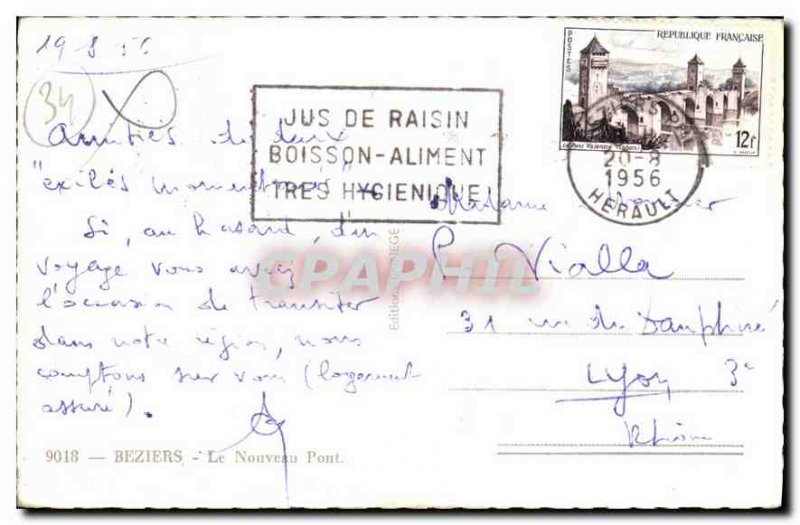 19 8 56
34
Amitiés de deux
"exilés momentanés"
Si, au hasard, d'un
voyage vous avez
l'occasion de transiter
dans notre région, nous
comptons sur vous (logement
assuré).
9018 — BEZIERS - Le Nouveau Pont.
JUS DE RAISIN
BOISSON-ALIMENT
TRES HYGIENIQUE
Editions
CPAPHIL
POSTES
REPUBLIQUE FRANÇAISE
Le Pont Valentré
12F
20-8
1956
HERAULT
Madame
P. Vialla
31 rue du Dauphiné
Lyon 3e
Rhône